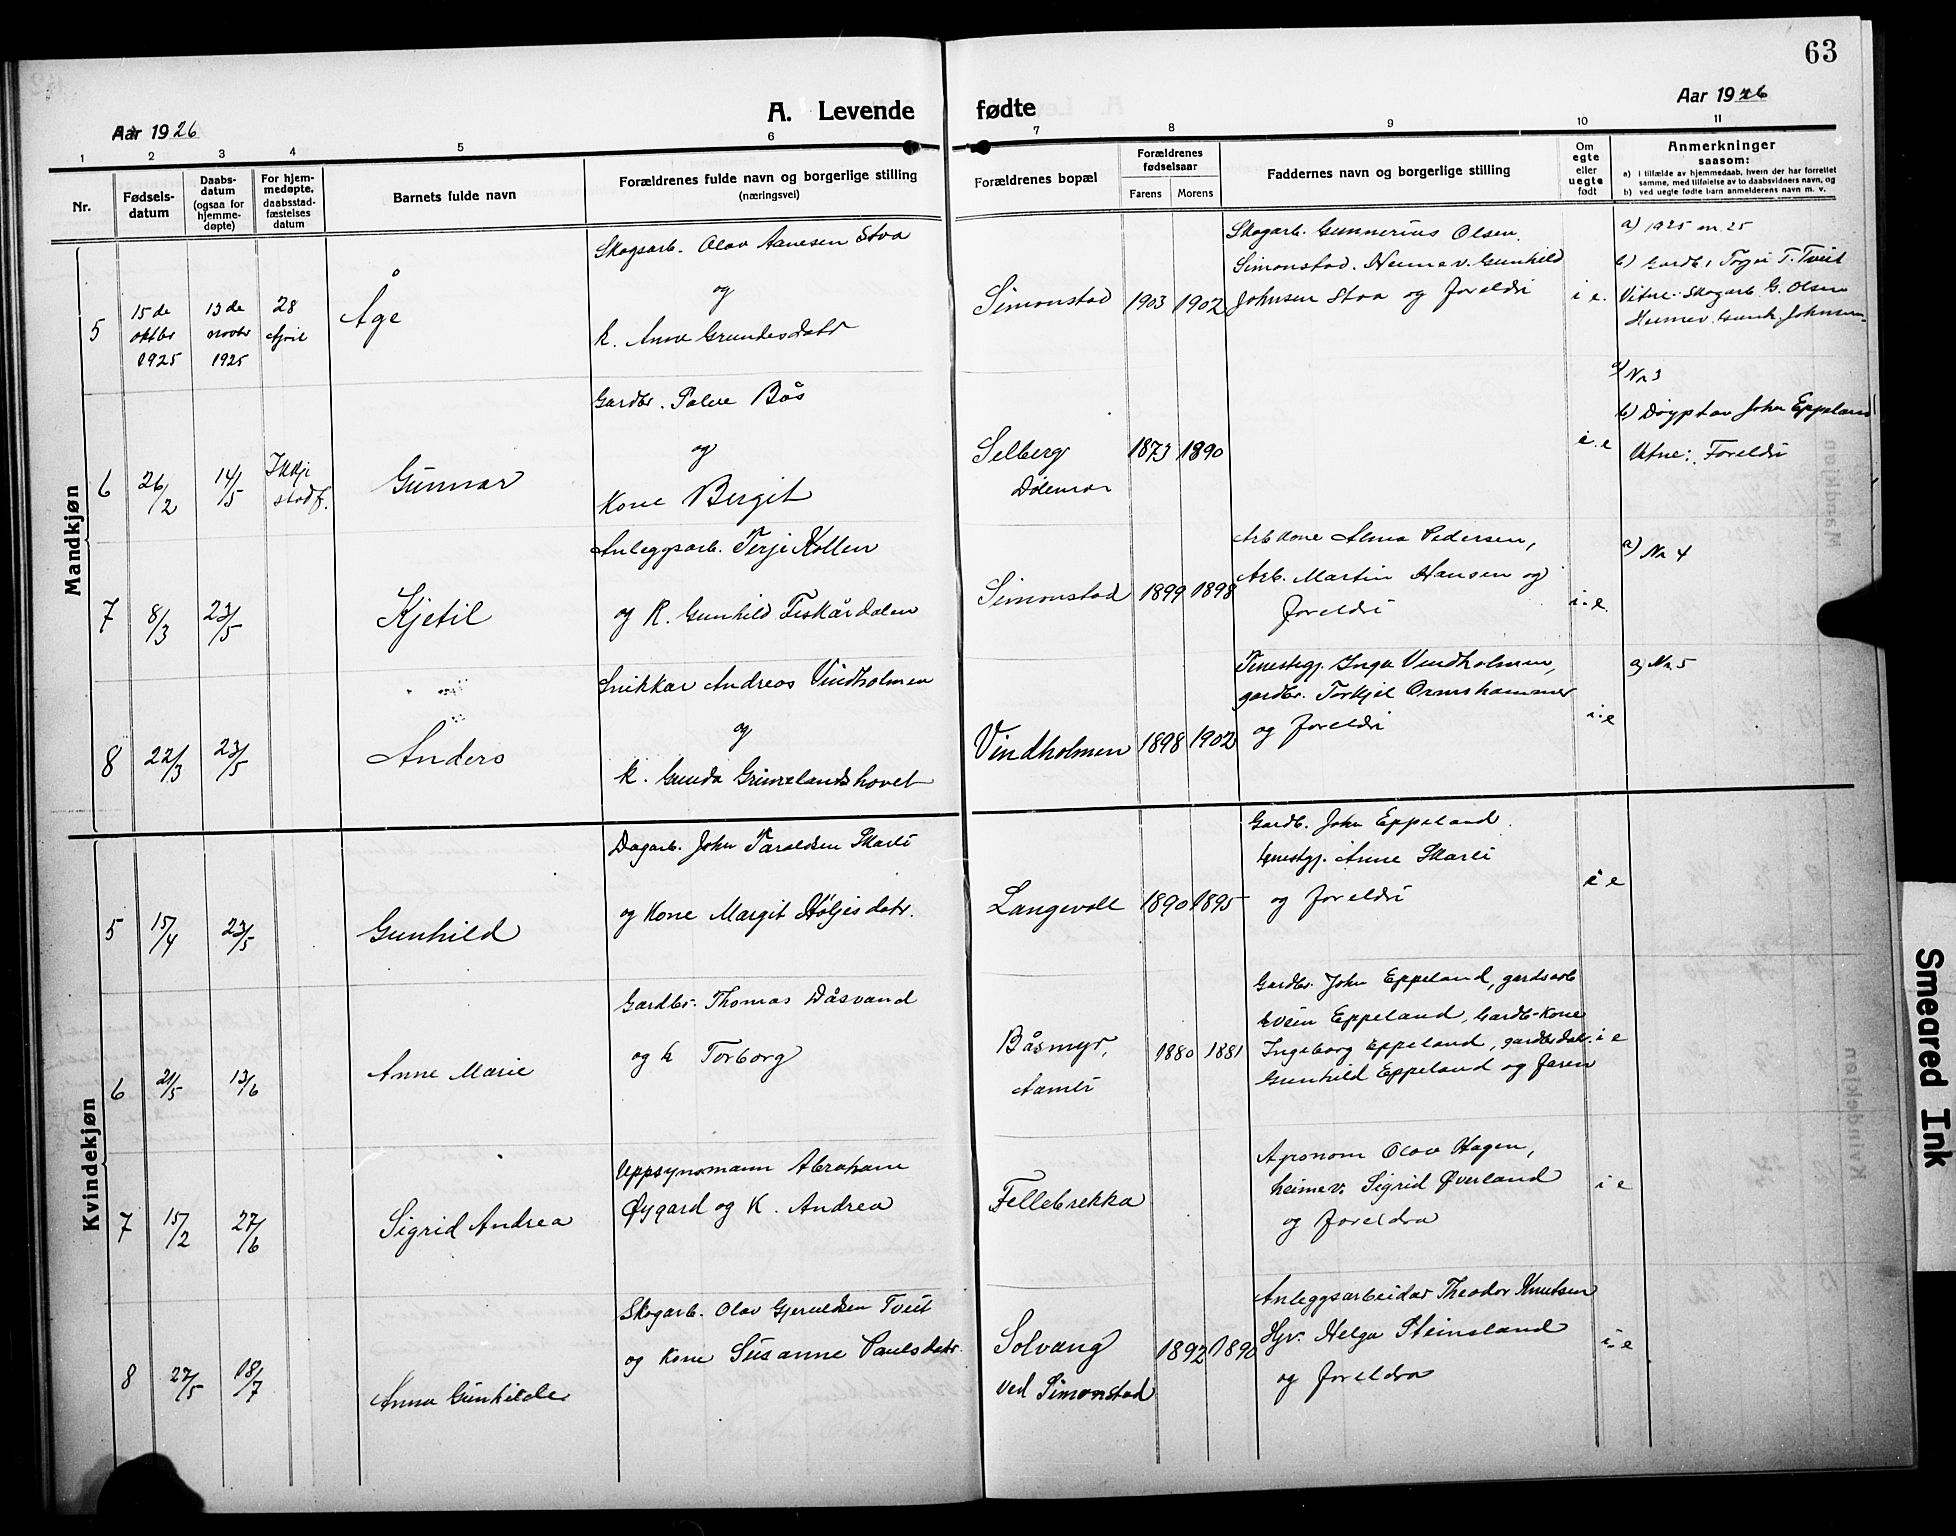 63
A. Levende fødte
Aar 1926
Aar 1926
1 2 3 4 5 6 7 8 9 10 11
Nr.
Fødsels-
datum
Daabs-
datum
(ogsaa for
hjemme-
døpte)
For hjem-
medøpte,
daabsstad-
fæstelses
datum
Barnets fulde navn
Forældrenes fulde navn og borgerlige stilling
(næringsvei)
Forældrenes bopæl
Forældrenes
fødselsaar
Farens Morens
Faddernes navn og borgerlige stilling
Om
egte
eller
uegte
født
Anmerkninger
saasom:
a) i tilfælde av hjemmedaab, hvem der har forrettet
samme, med tilføielse av to daabsvidners navn, og
b) ved uegte fødte barn anmelderens navn m. v.
Mandkjøn
5
15de
oktbr
1925
13de
novbr
1925
28
April
Åge
Skogsarb. Olav Aanesen Stva
og
K. Anne Grundesdatr
Simonstad
1903 1902
Skogarb. Gunnerius Olsen.
Simonstad. Heimev. Gunhild
Johnsen Staa og foreldri
i e.
a) 1925 nr. 25
b) Gardb. Torje T. Tveit
Vitne: Skogarb. G. Olsen
Heimev. Gunh. Johnsen
6
26/2
14/5
Ikkje
stadf.
Gunnar
Gardbr. Salve Bås
og
Kone Bergit
Selberg
Dølemo
1873 1890
i. e
a) Nr 3
b) Døypt av John Eppeland
Vitne: Foreldri
7
8/3
23/5
Kjetil
Anleggsarb. Terje Kollen
og K. Gunhild Fiskårdalen
Simonstad
1899 1898
Arb kone Alma Pedersen,
Arb. Martin Hansen og
foreldri
i. e.
a) Nr 4
8
22/3
23/5
Anders
Snikkar Andreas Vindholmen
og
K. Gunda Grimelandshovet
Vindholmen
1898 1902
Tenestgj. Inga Vindholmen,
gardbr. Torkjel Ormshammer
og foreldri
i. e
a) Nr 5
Kvindekjøn
5
15/4
23/5
Gunhild
Dagarb. John Taraldsen Skarli
og Kone Margit Høljesdatr.
Langevoll
1890 1895
Gardb. John Eppeland
tenestgj. Anne Skarli
og foreldri
i e
6
21/5
13/6
Anne Marie
Gardbr. Thomas Dåsvand
og k Torborg
Båsmyr,
Aamli
1880 1881
Gardbr. John Eppeland, gardsarb
Svein Eppeland, Gardb-kone
Ingeborg Eppeland, gardbrdatr.
Gunhild Eppeland og faren
i e
7
15/2
27/6
Sigrid Andrea
Uppsynsmann Abraham
Øygard og K. Andrea
Fellebrekka
Agronom Olav Hagen,
heimev. Sigrid Øverland
og foreldra
i e
8
27/5
18/7
Anna Gunhilde
Skogarb. Olav Gjeruldsen Tveit
og kone Susanne Paulsdatr.
Solvang
ved Simonstad
1892 1890
Anleggsarbeidar Theodor Knutsen
Hjv. Helga Steinsland
og foreldra
i. e
Smeared Ink